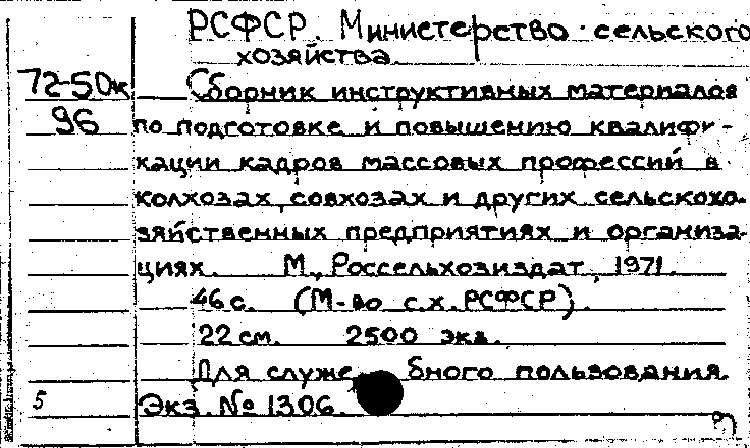 РСФСР. Министерство сельского
хозяйства.
72-50к Сборник инструктивных материалов
96 по подготовке и повышению квалифи-
кации кадров массовых профессий в
колхозах, совхозах и других сельскохо-
зяйственных предприятиях и организа-
циях. М., Россельхозиздат, 1971.
46 с. (М-во с.х. РСФСР).
22 см. 2500 экз.
Для служебного пользования.
5 Экз. № 1306.